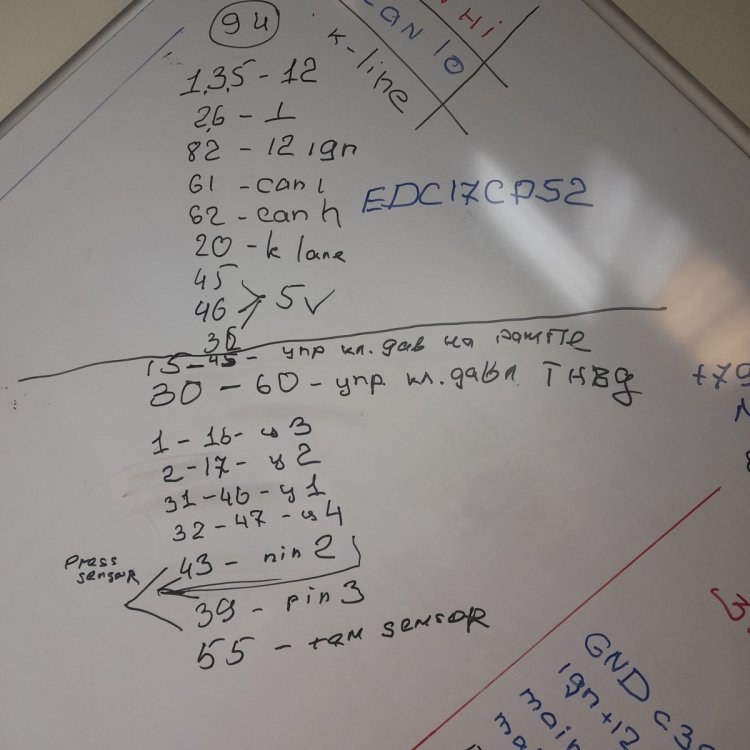 94
HI
CAN lO
k-line
1,3,5 - 12
2,6 - 1
82 - 12 ign
61 - can l
62 - can h
EDC17CP52
20 - k lane
45
46 > 5V
36
15 - 45 - упр кл. дав на рампе
30 - 60 - упр кл. давл ТНВД
+79
1 - 16 - ц 3
2 - 17 - ц 2
31 - 46 - ц 1
32 - 47 - ц 4
press
sensor
43 - pin 2
39 - pin 3
55 - tem sensor
GND
ign +12
main